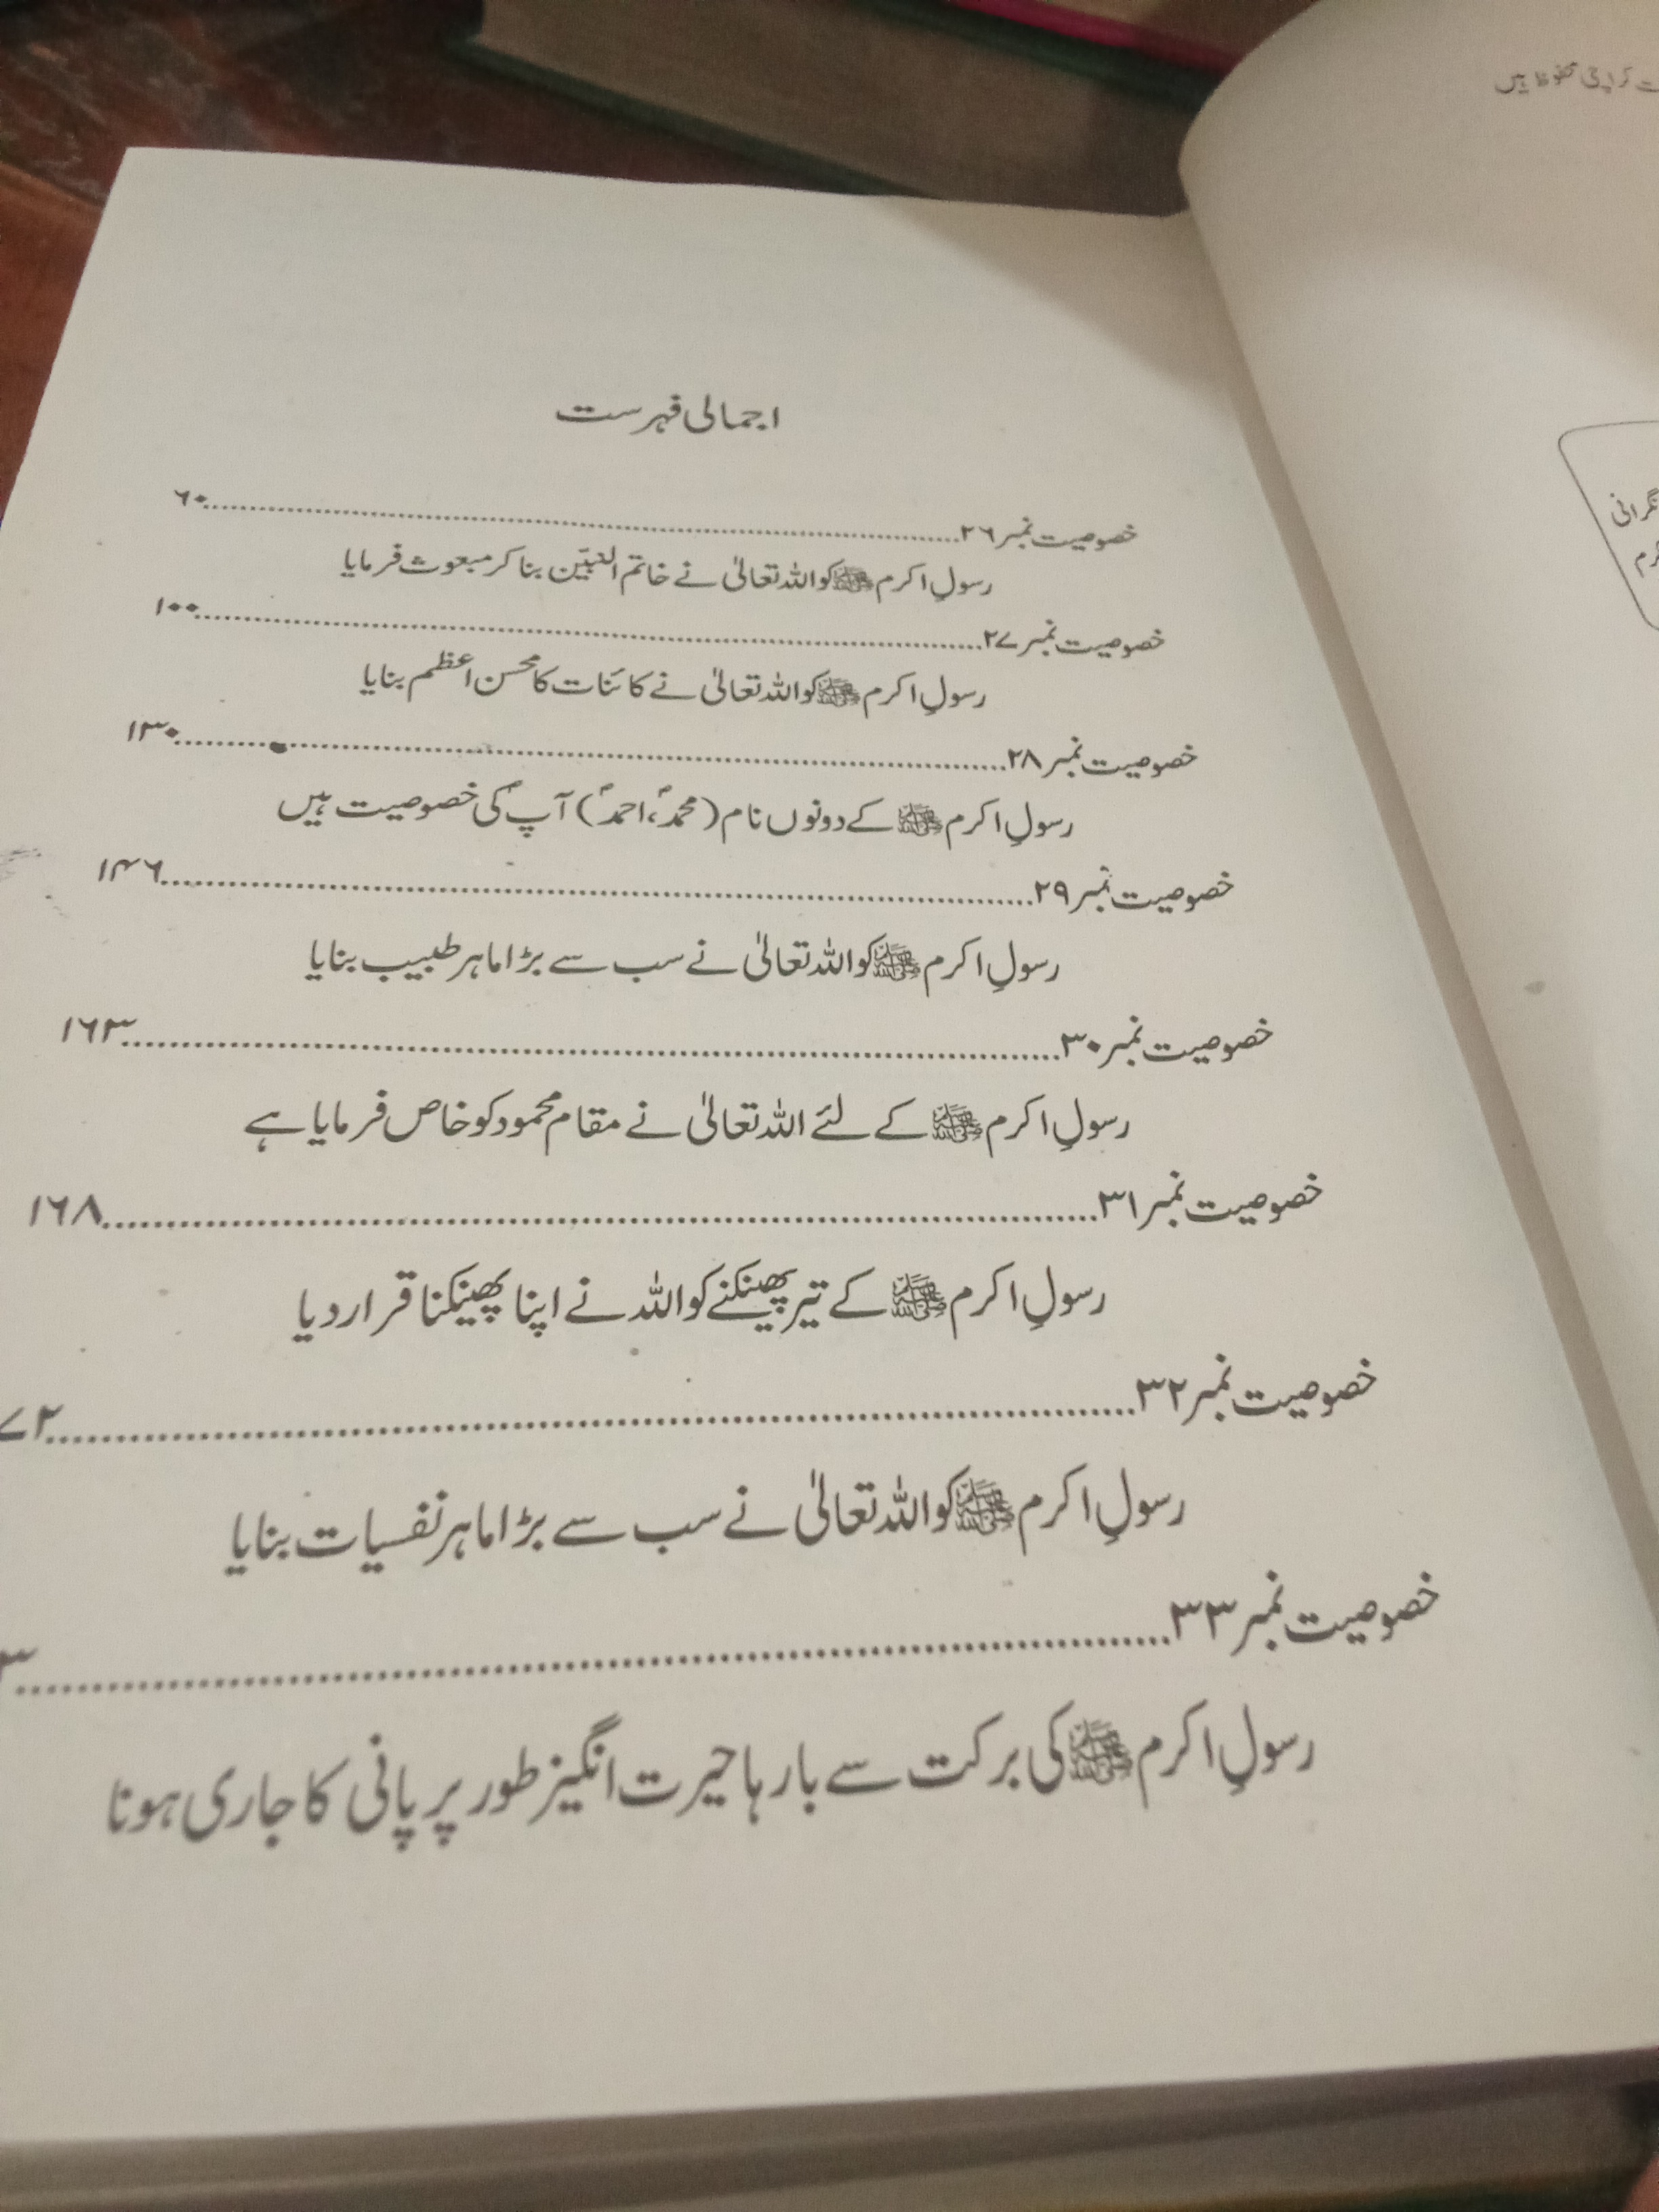 اجمالی فہرست
خصوصیت نمبر ۲۶..........۶۰
رسولِ اکرم ﷺ کو اللہ تعالیٰ نے خاتم النبیّین بنا کر مبعوث فرمایا
خصوصیت نمبر ۲۷..........۱۰۰
رسولِ اکرم ﷺ کو اللہ تعالیٰ نے کائنات کا محسن اعظم بنایا
خصوصیت نمبر ۲۸..........۱۳۰
رسولِ اکرم ﷺ کے دونوں نام (محمدؐ، احمدؐ) آپؐ کی خصوصیت ہیں
خصوصیت نمبر ۲۹..........۱۴۶
رسولِ اکرم ﷺ کو اللہ تعالیٰ نے سب سے بڑا ماہر طبیب بنایا
خصوصیت نمبر ۳۰..........۱۶۳
رسولِ اکرم ﷺ کے لئے اللہ تعالیٰ نے مقام محمود کو خاص فرمایا ہے
خصوصیت نمبر ۳۱..........۱۶۸
رسولِ اکرم ﷺ کے تیر پھینکنے کو اللہ نے اپنا پھینکنا قرار دیا
خصوصیت نمبر ۳۲..........۷۲
رسولِ اکرم ﷺ کو اللہ تعالیٰ نے سب سے بڑا ماہر نفسیات بنایا
خصوصیت نمبر ۳۳..........۳
رسولِ اکرم ﷺ کی برکت سے بارہا حیرت انگیز طور پر پانی کا جاری ہونا
کراچی محفوظ ہیں